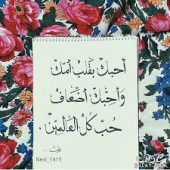 أحبك بقلب أمك
وأحبك أضعاف
حب كل العالمين .
Next_1415